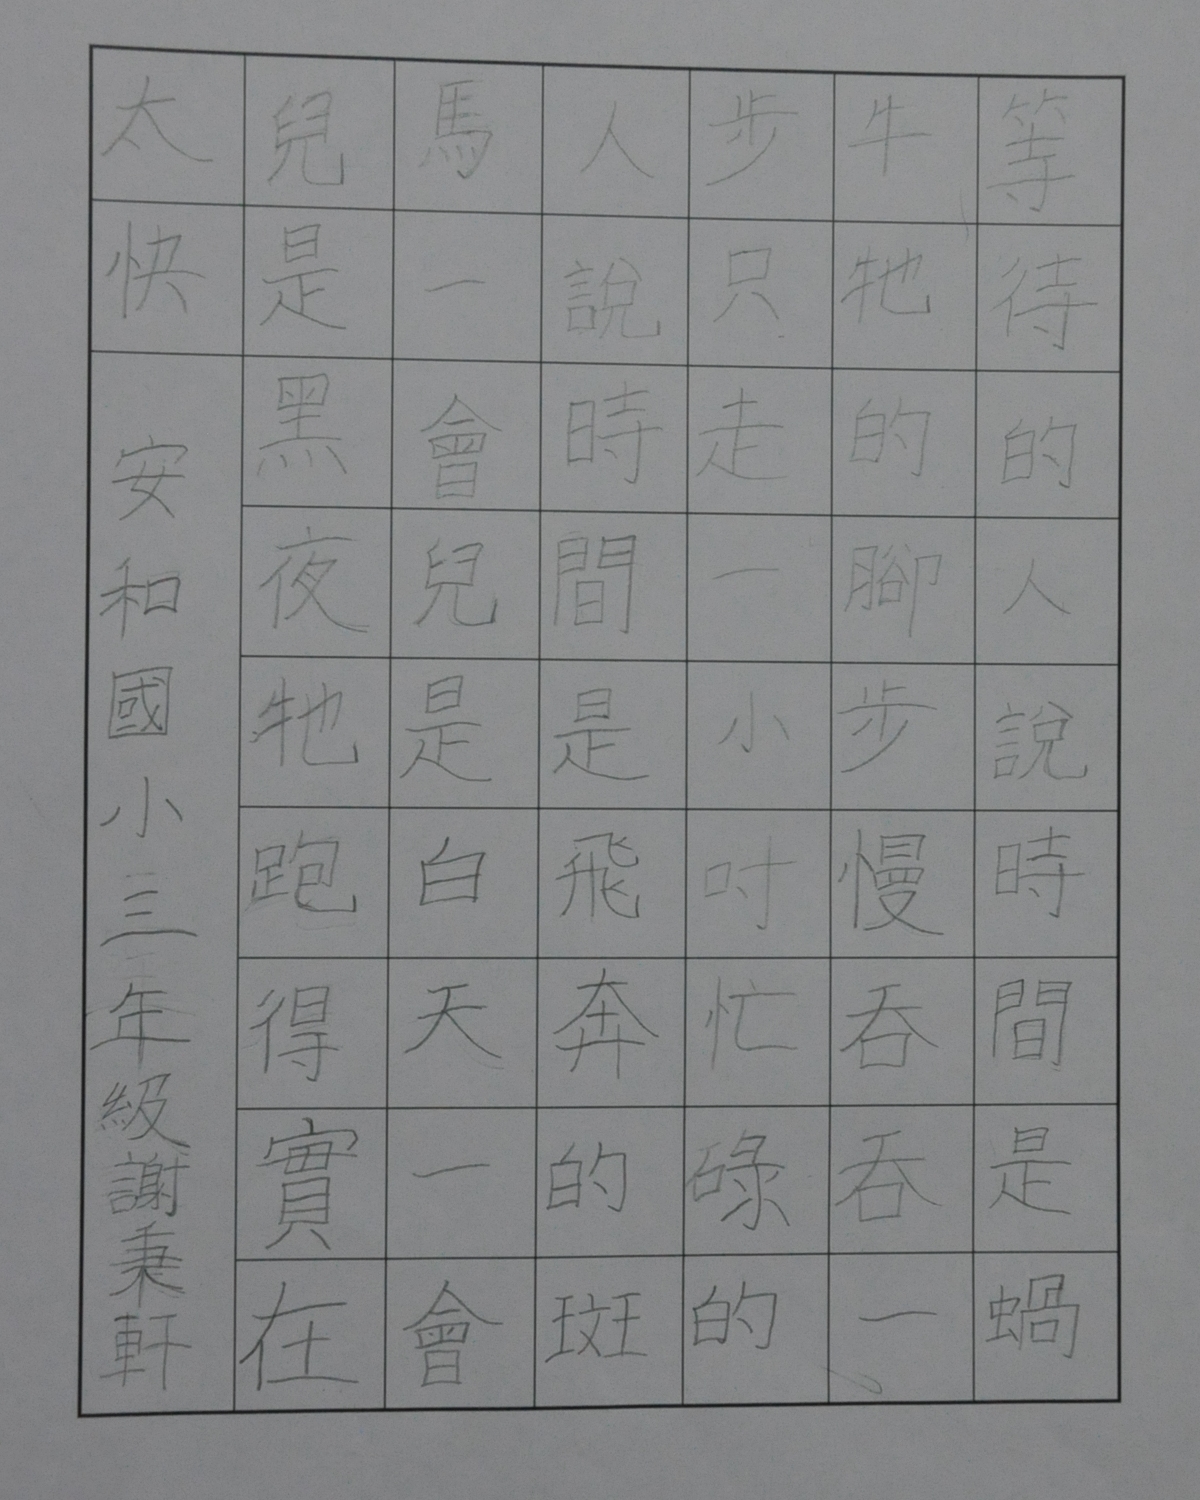 等待的人說時間是蝸
牛牠的腳步慢吞吞一
步只走一小吋忙碌的
人說時間是飛奔的斑
馬一會兒是白天一會
兒是黑夜牠跑得實在
太快
安和國小三年級謝秉軒